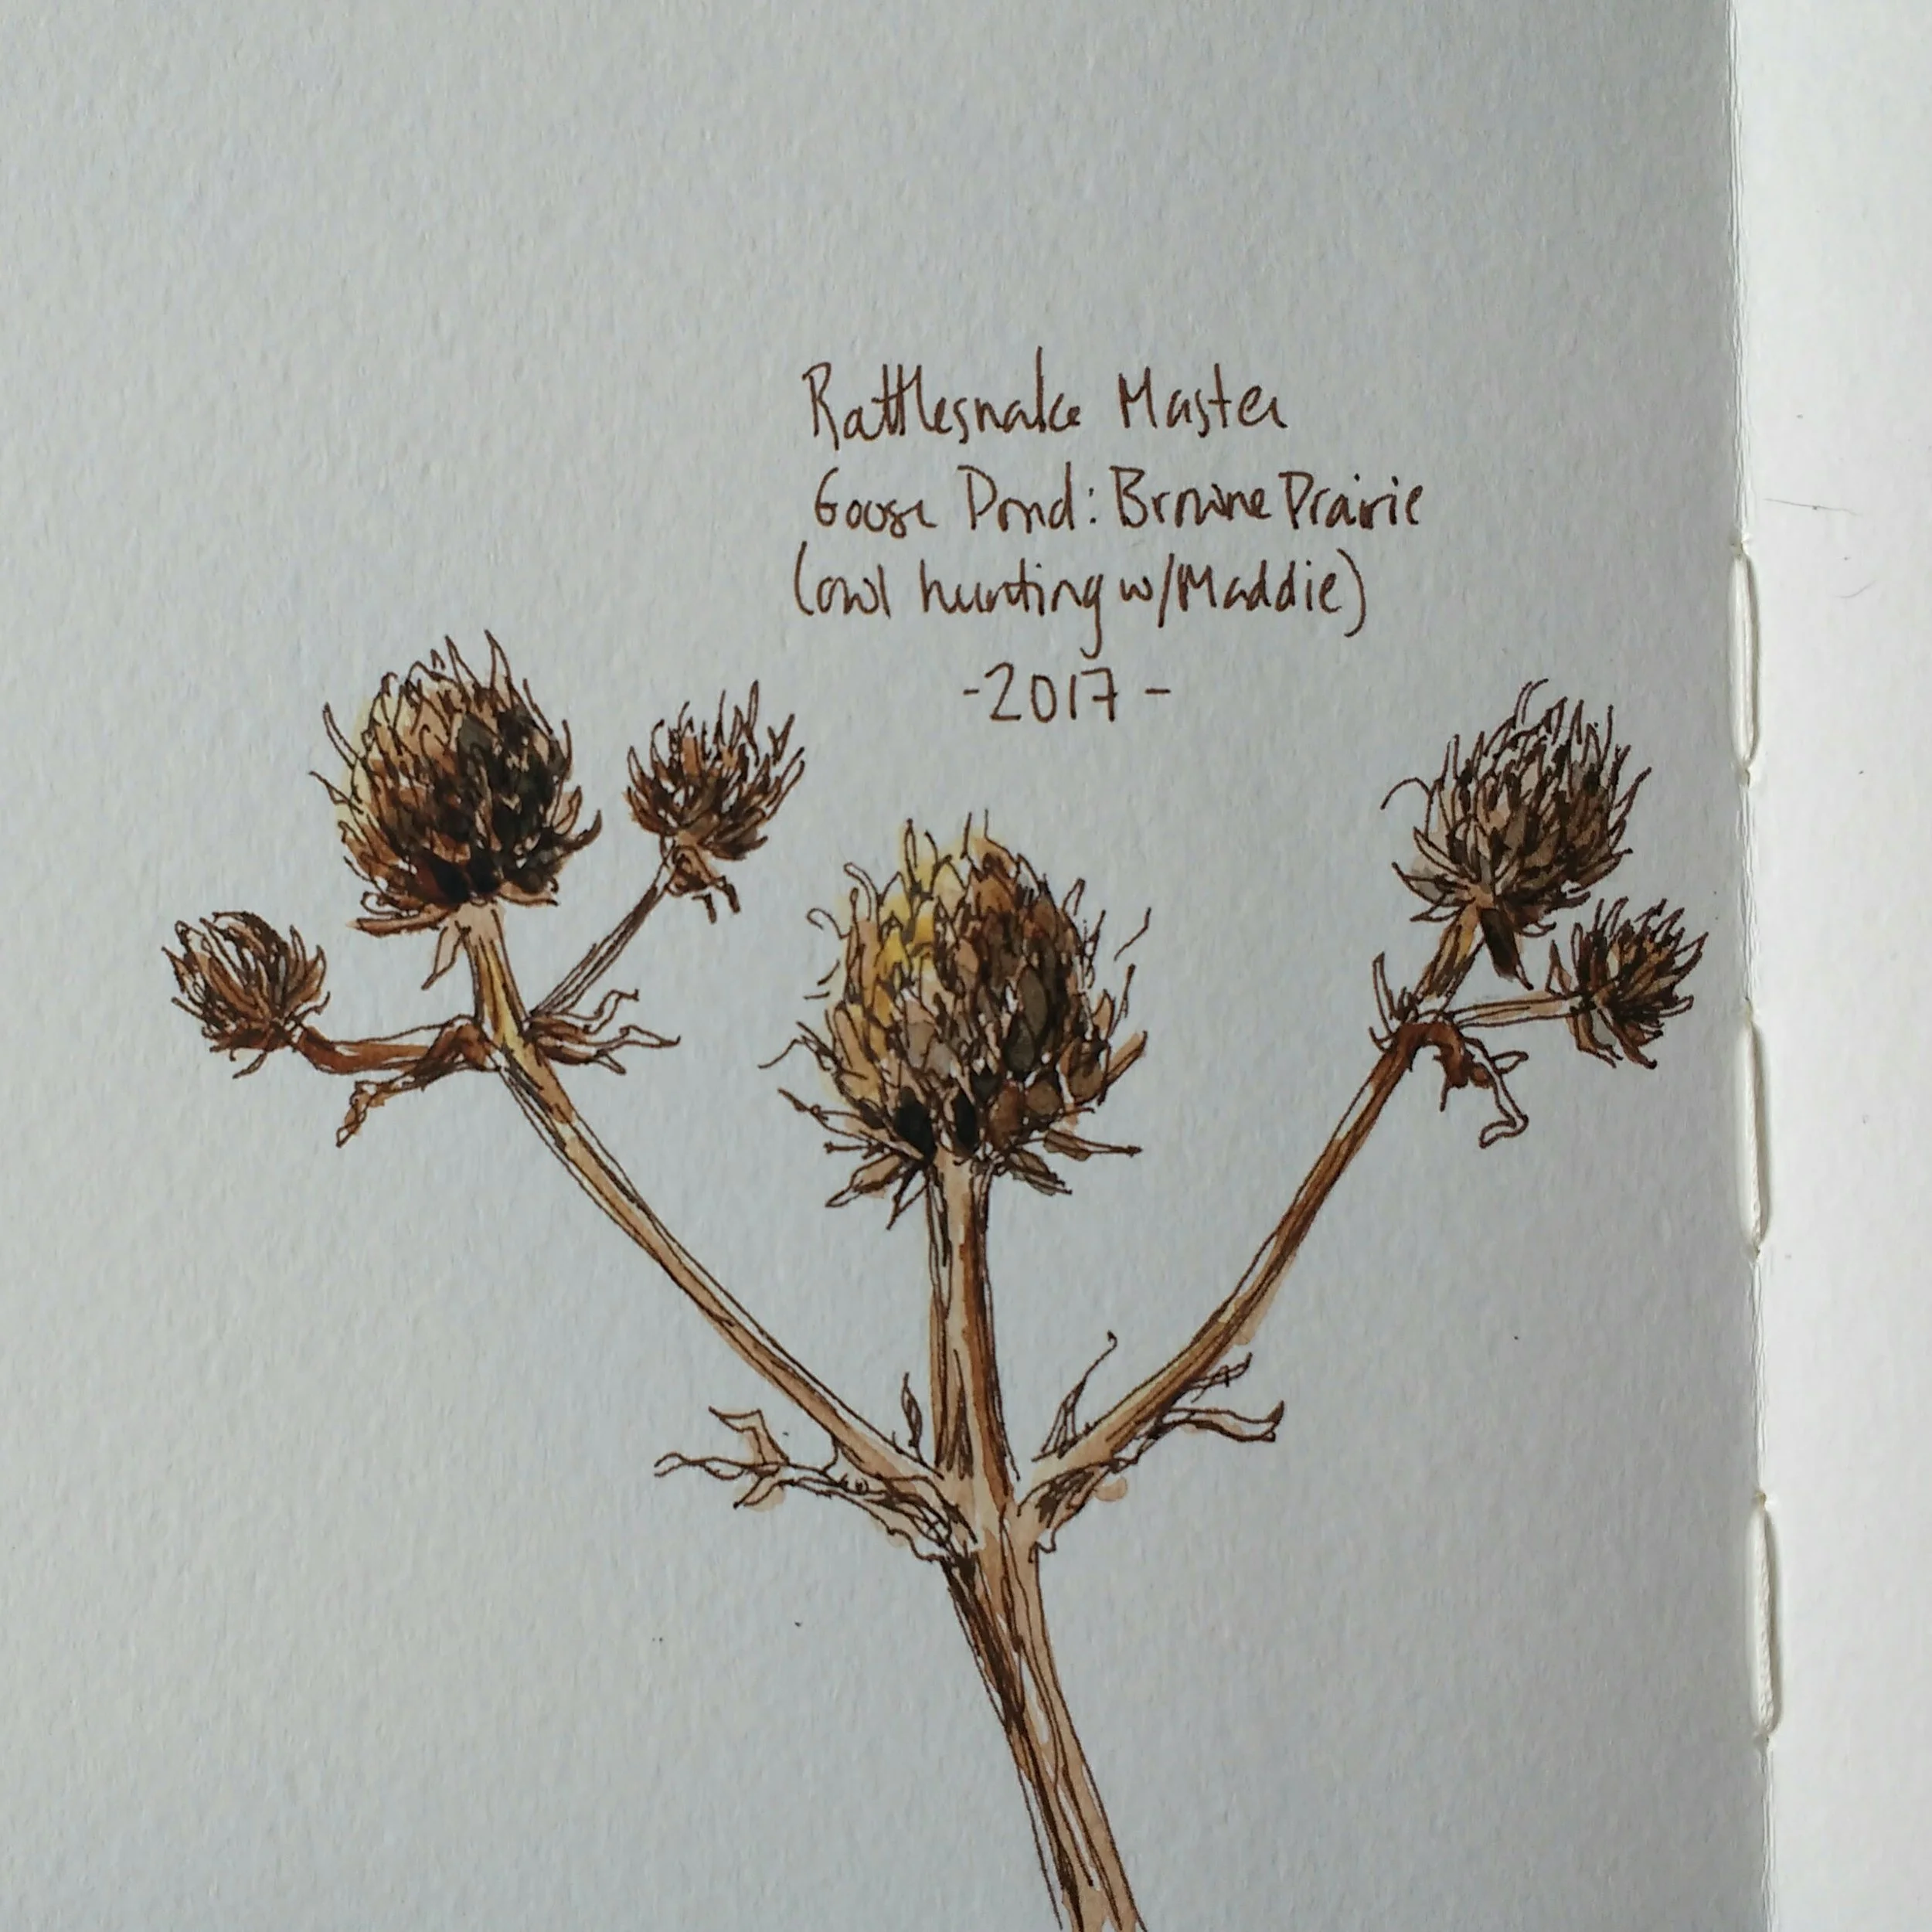 Rattlesnake Master
Goose Pond: Browne Prairie
(owl hunting w/Maddie)
-2017-